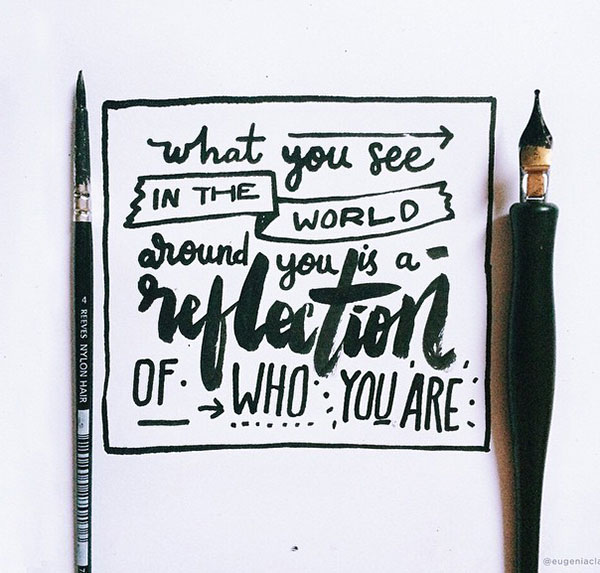 what you see
IN THE
WORLD
around you is a
reflection
OF WHO YOU ARE
4 REEVES NYLON HAIR